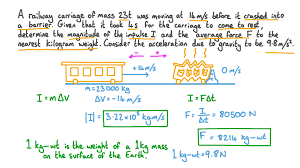 A railway carriage of mass 23t was moving at 16 m/s before it crashed into
a barrier. Given that it took 4s for the carriage to come to rest,
determine the magnitude of the impulse I and the average force F to the
nearest kilogram weight. Consider the acceleration due to gravity to be 9.8 m/s².
+16 m/s
0 m/s
m = 23000 kg
ΔV = -14 m/s
I = mΔV
|I| = 3.22 × 10⁵ kg m/s
I = FΔt
F = I/Δt = 80500 N
F = 8214 kg-wt
1 kg-wt is the weight of a 1kg mass
on the surface of the Earth.
1 kg-wt = 9.8N